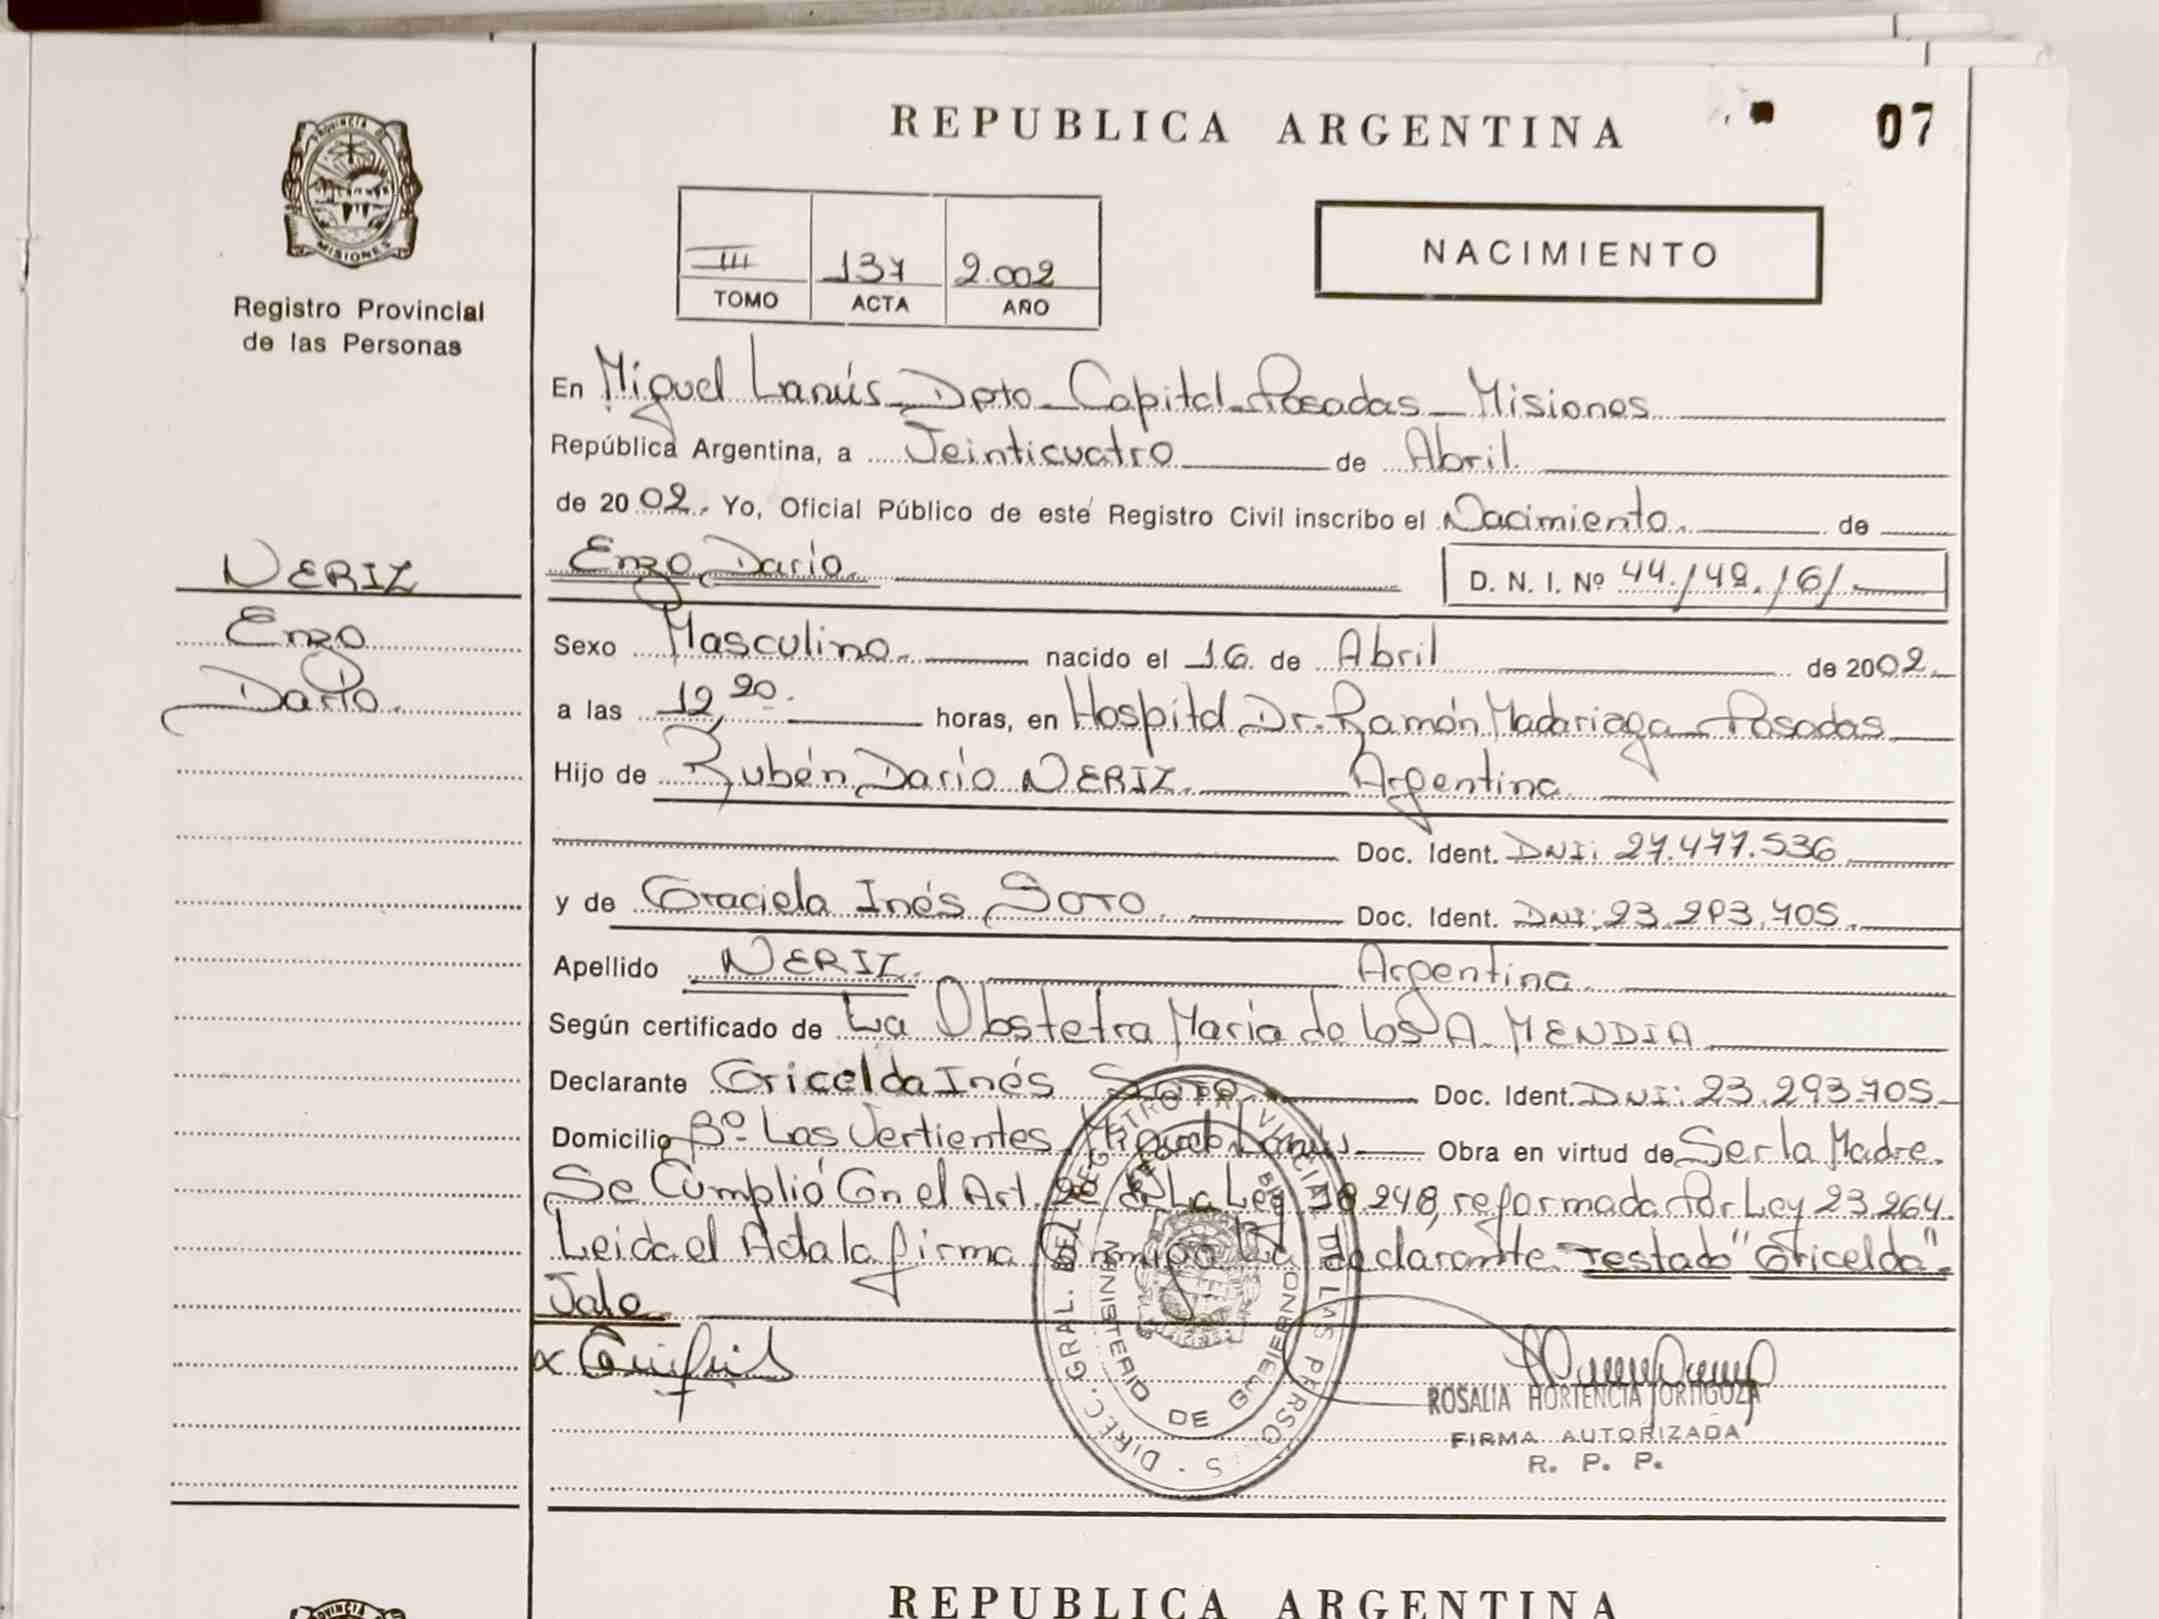 REPUBLICA ARGENTINA
07
PROVINCIA DE
MISIONES
Registro Provincial
de las Personas
NACIMIENTO
III 137 2.002
TOMO ACTA AÑO
En Miguel Lanús - Dpto - Capital - Posadas - Misiones
República Argentina, a Veinticuatro de Abril.
de 2002. Yo, Oficial Público de este Registro Civil inscribo el Nacimiento. de
NERIZ
Enzo
Darío.
Enzo Darío. D. N. I. Nº 44.142.161.
Sexo Masculino. nacido el 16 de Abril de 2002.
a las 12,20. horas, en Hospital Dr. Ramón Madariaga - Posadas
Hijo de Rubén Darío NERIZ. Argentina
Doc. Ident. DNI: 27.477.536
y de Graciela Inés SOTO Doc. Ident. DNI: 23.293.705.
Apellido NERIZ. Argentina.
Según certificado de La Obstetra María de los A. MENDIA
Declarante Gricelda Inés SOTO Doc. Ident. DNI: 23.293.705
Domicilio Bº Las Vertientes, Miguel Lanús Obra en virtud de Ser la Madre.
Se Cumplió Con el Art. de La Ley 18.248, reformada Por Ley 23.264.
Leida el Acta la firma Conmigo La declarante. Testado "Gricelda".
Vale
DIREC. GRAL. DEL REGISTRO PROVINCIAL DE LAS PERSONAS
MINISTERIO DE GOBIERNO
ROSALIA HORTENCIA ORTIGOZA
FIRMA AUTORIZADA
R. P. P.
REPUBLICA ARGENTINA